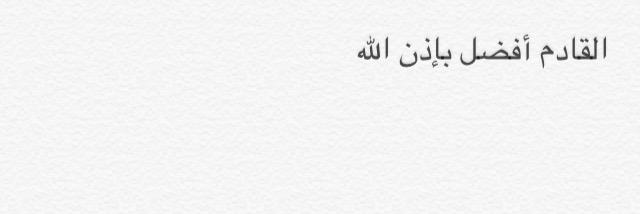 القادم أفضل بإذن الله